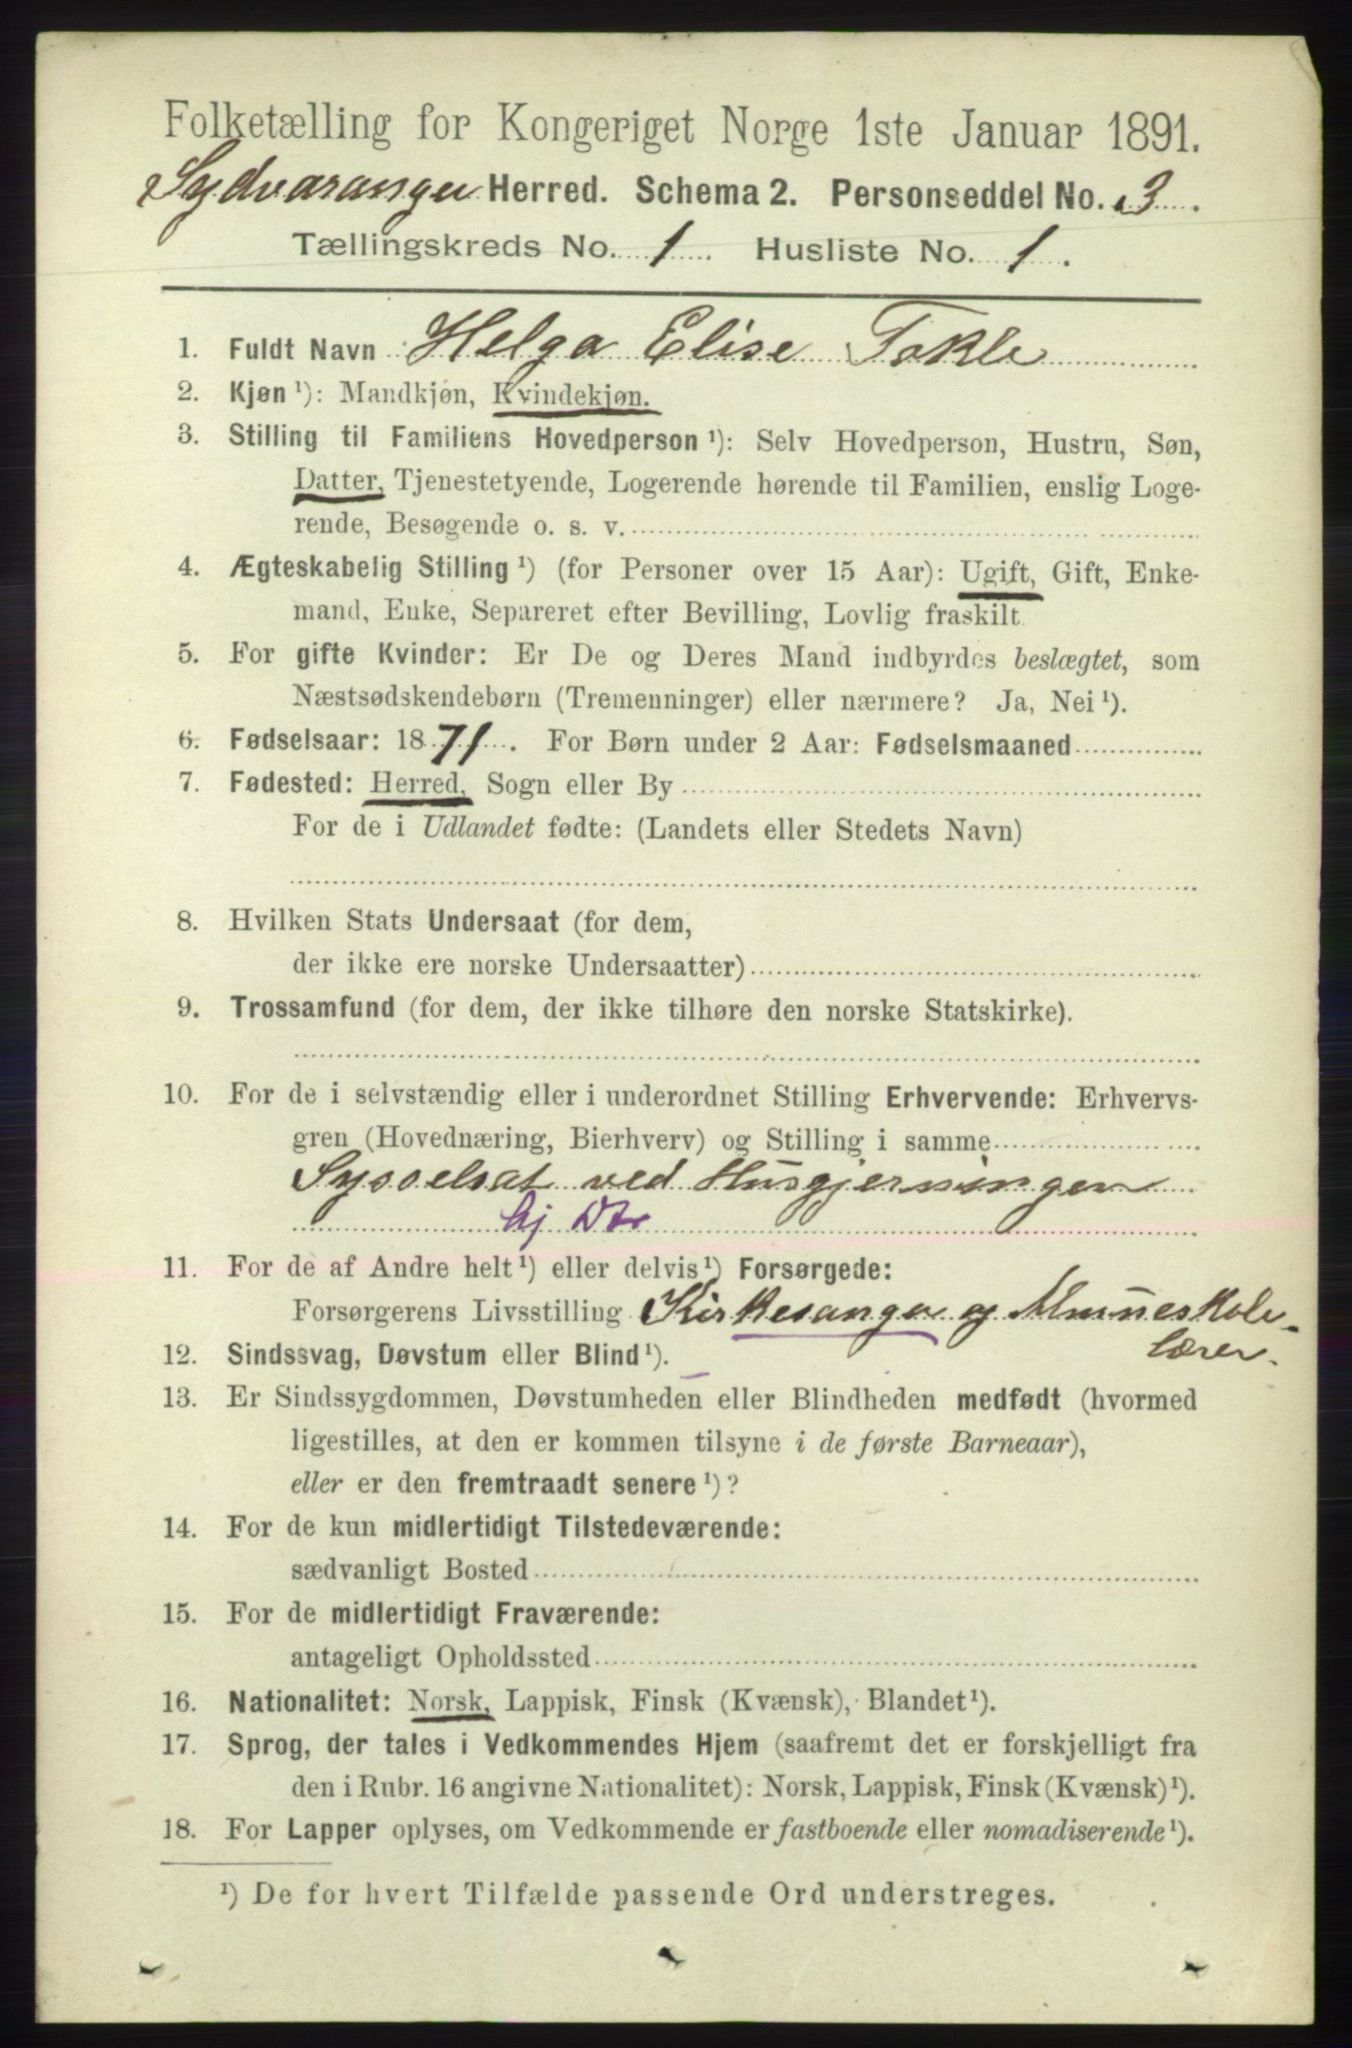 Folketælling for Kongeriget Norge 1ste Januar 1891.
Sydvaranger Herred. Schema 2. Personseddel No. 3.
Tællingskreds No. 1. Husliste No. 1.
1. Fuldt Navn Helga Elise Tokle
2. Kjøn ¹): Mandkjøn, Kvindekjøn.
3. Stilling til Familiens Hovedperson ¹): Selv Hovedperson, Hustru, Søn,
Datter, Tjenestetyende, Logerende hørende til Familien, enslig Loge-
rende, Besøgende o. s. v.
4. Ægteskabelig Stilling ¹) (for Personer over 15 Aar): Ugift, Gift, Enke-
mand, Enke, Separeret efter Bevilling, Lovlig fraskilt
5. For gifte Kvinder: Er De og Deres Mand indbyrdes beslægtet, som
Næstsødskendebørn (Tremenninger) eller nærmere? Ja, Nei ¹).
6. Fødselsaar: 1871. For Børn under 2 Aar: Fødselsmaaned
7. Fødested: Herred, Sogn eller By
For de i Udlandet fødte: (Landets eller Stedets Navn)
8. Hvilken Stats Undersaat (for dem,
der ikke ere norske Undersaatter)
9. Trossamfund (for dem, der ikke tilhøre den norske Statskirke).
10. For de i selvstændig eller i underordnet Stilling Erhvervende: Erhvervs-
gren (Hovednæring, Bierhverv) og Stilling i samme
Sysselsat ved Husgjerningen
hj Dtr
11. For de af Andre helt ¹) eller delvis ¹) Forsørgede:
Forsørgerens Livsstilling Kirkesanger og Almueskole-
lærer.
12. Sindssvag, Døvstum eller Blind ¹).
13. Er Sindssygdommen, Døvstumheden eller Blindheden medfødt (hvormed
ligestilles, at den er kommen tilsyne i de første Barneaar),
eller er den fremtraadt senere ¹)?
14. For de kun midlertidigt Tilstedeværende:
sædvanligt Bosted
15. For de midlertidigt Fraværende:
antageligt Opholdssted
16. Nationalitet: Norsk, Lappisk, Finsk (Kvænsk), Blandet ¹).
17. Sprog, der tales i Vedkommendes Hjem (saafremt det er forskjelligt fra
den i Rubr. 16 angivne Nationalitet): Norsk, Lappisk, Finsk (Kvænsk) ¹).
18. For Lapper oplyses, om Vedkommende er fastboende eller nomadiserende ¹).
¹) De for hvert Tilfælde passende Ord understreges.